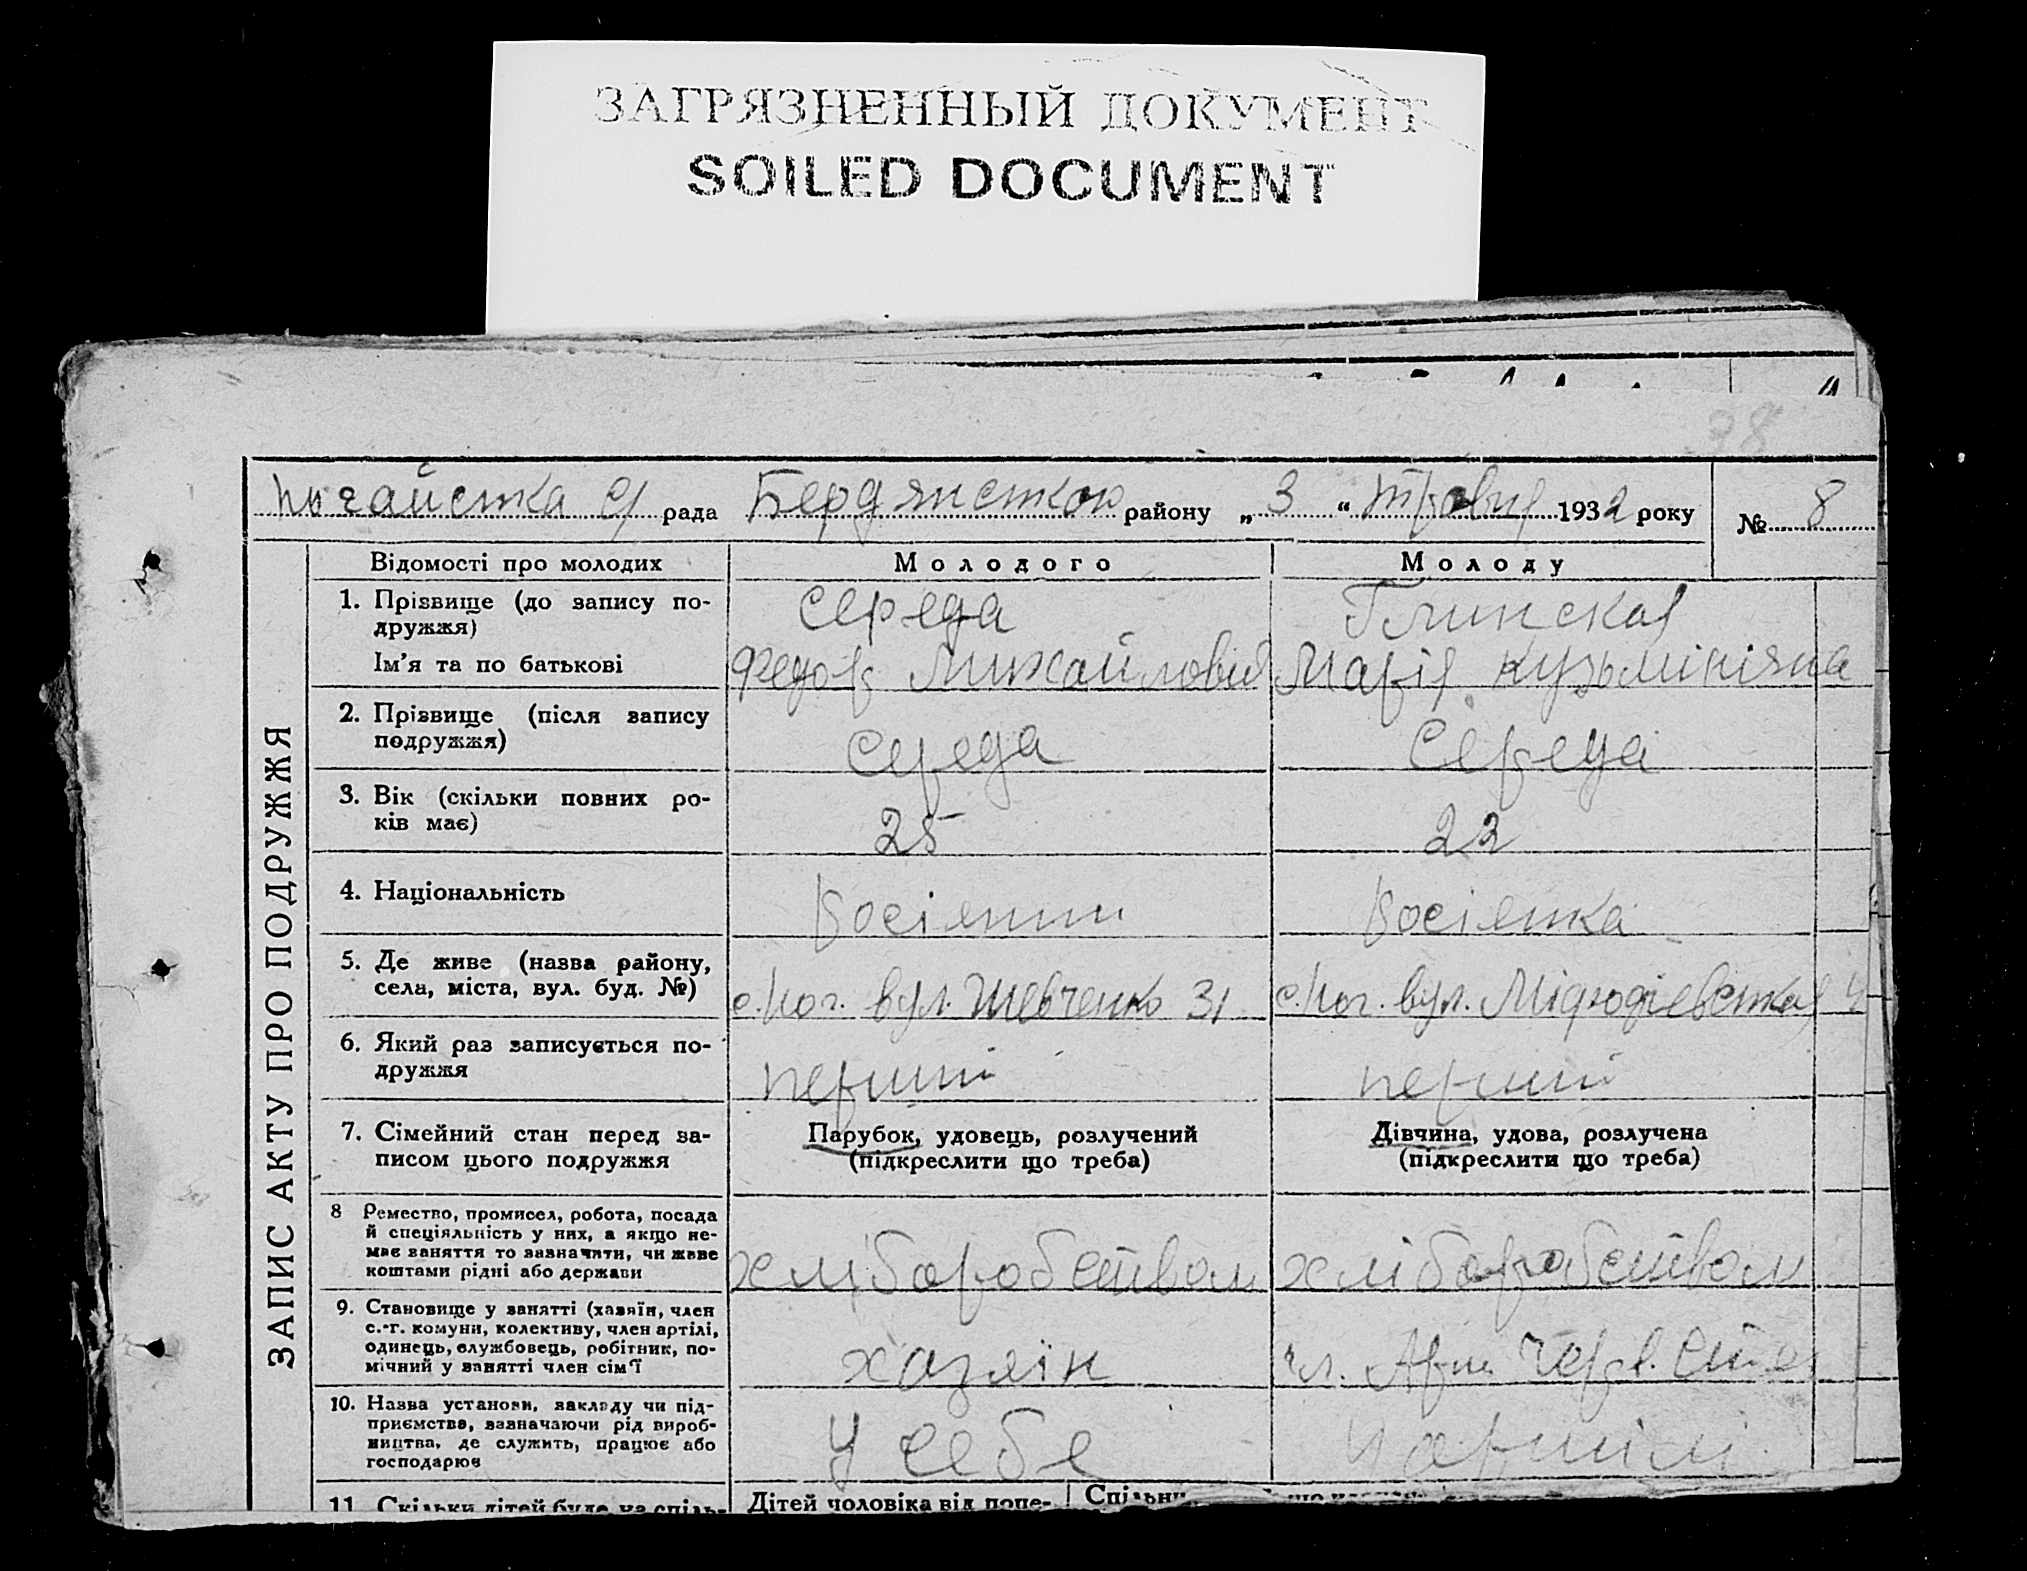 ЗАГРЯЗНЕННЫЙ ДОКУМЕНТ
SOILED DOCUMENT
38
Ногайська с/ рада Бердянського району „3“ травня 1932 року № 8
ЗАПИС АКТУ ПРО ПОДРУЖЖЯ
Відомості про молодих Молодого Молоду
1. Прізвище (до запису по-
дружжя)
Середа Глинская
Ім'я та по батькові Федор Михайлович Марія Кузьмінічна
2. Прізвище (після запису
подружжя)
Середа Середа
3. Вік (скільки повних ро-
ків має)
25 22
4. Національність Восіянин Восіянка
5. Де живе (назва району,
села, міста, вул. буд. №)
с. Ног. вул. Шевченко 31 с. Ног. вул. 4
6. Який раз записується по-
дружжя
перший перший
7. Сімейний стан перед за-
писом цього подружжя
Парубок, удовець, розлучений
(підкреслити що треба)
Дівчина, удова, розлучена
(підкреслити що треба)
8 Ремество, промисел, робота, посада
й спеціяльність у них, а якщо не-
має заняття то зазначити, чи живе
коштами рідні або держави
хліборобством хліборобством
9. Становище у занятті (хазяїн, член
с.-г. комуни, колективу, член артілі,
одинець, службовець, робітник, по-
мічний у занятті член сім'ї
хазяїн чл. Арт. Черв.
10. Назва установи, закладу чи під-
приємства, зазначаючи рід вироб-
ництва, де служить, працює або
господарює
У себе У артілі
11. Скільки дітей було на спіль- Дітей чоловіка від попе-